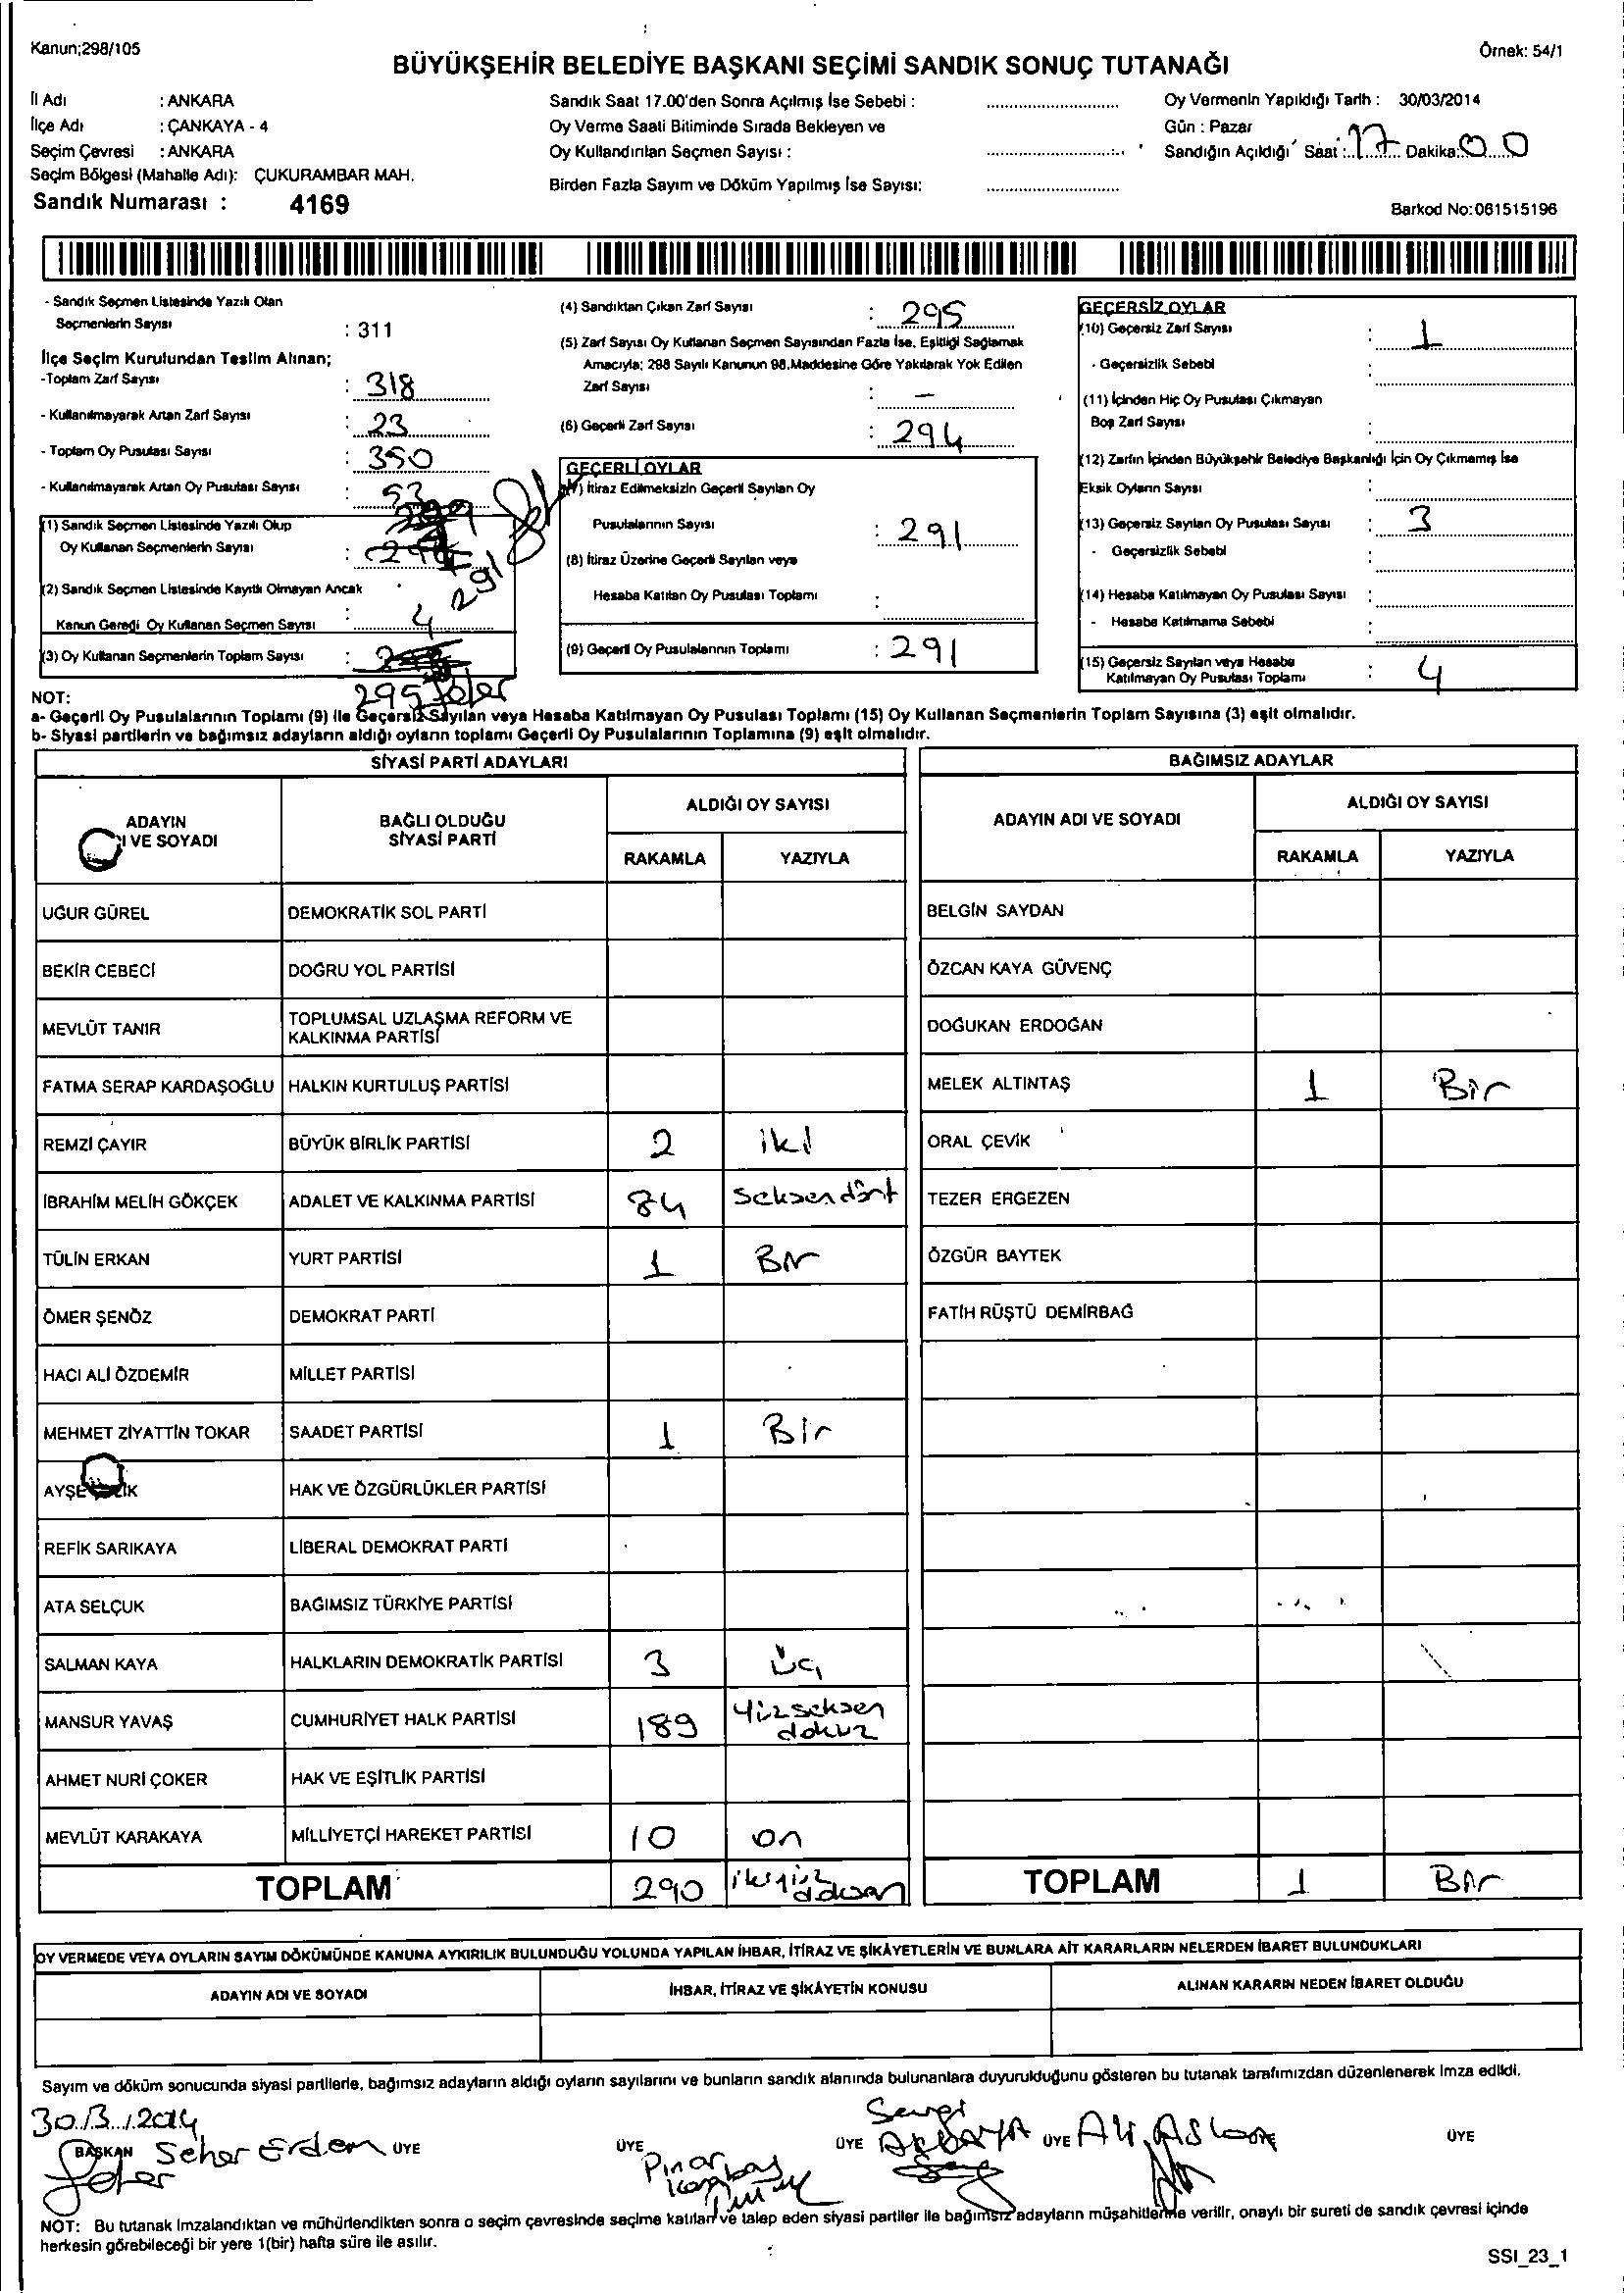 Kanun;298/105
Örnek: 54/1
BÜYÜKŞEHİR BELEDİYE BAŞKANI SEÇİMİ SANDIK SONUÇ TUTANAĞI
İl Adı : ANKARA
İlçe Adı : ÇANKAYA - 4
Seçim Çevresi : ANKARA
Seçim Bölgesi (Mahalle Adı): ÇUKURAMBAR MAH.
Sandık Numarası : 4169
Sandık Saat 17.00'den Sonra Açılmış İse Sebebi :
Oy Verme Saati Bitiminde Sırada Bekleyen ve
Oy Kullandırılan Seçmen Sayısı :
Birden Fazla Sayım ve Döküm Yapılmış İse Sayısı:
Oy Vermenin Yapıldığı Tarih : 30/03/2014
Gün : Pazar
Sandığın Açıldığı Saat : 17 Dakika: 00
Barkod No:061515196
- Sandık Seçmen Listesinde Yazılı Olan
Seçmenlerin Sayısı : 311
İlçe Seçim Kurulundan Teslim Alınan;
-Toplam Zarf Sayısı : 318
- Kullanılmayarak Artan Zarf Sayısı : 23
- Toplam Oy Pusulası Sayısı : 350
- Kullanılmayarak Artan Oy Pusulası Sayısı : 53
(1) Sandık Seçmen Listesinde Yazılı Olup
Oy Kullanan Seçmenlerin Sayısı : 291
(2) Sandık Seçmen Listesinde Kayıtlı Olmayan Ancak
Kanun Geredi Oy Kullanan Seçmen Sayısı : 4
(3) Oy Kullanan Seçmenlerin Toplam Sayısı :
295
(4) Sandıktan Çıkan Zarf Sayısı : 295
(5) Zarf Sayısı Oy Kullanan Seçmen Sayısından Fazla İse, Eşitliği Sağlamak
Amacıyla; 298 Sayılı Kanunun 98.Maddesine Göre Yakılarak Yok Edilen
Zarf Sayısı : -
(6) Geçerli Zarf Sayısı : 294
GEÇERLİ OYLAR
(7) İtiraz Edilmeksizin Geçerli Sayılan Oy
Pusulalarının Sayısı : 291
(8) İtiraz Üzerine Geçerli Sayılan veya
Hesaba Katılan Oy Pusulası Toplamı :
(9) Geçerli Oy Pusulalarının Toplamı : 291
GEÇERSİZ OYLAR
(10) Geçersiz Zarf Sayısı : 1
- Geçersizlik Sebebi :
(11) İçinden Hiç Oy Pusulası Çıkmayan
Boş Zarf Sayısı :
(12) Zarfın İçinden Büyükşehir Belediye Başkanlığı İçin Oy Çıkmamış İse
Eksik Oyların Sayısı :
(13) Geçersiz Sayılan Oy Pusulası Sayısı : 3
- Geçersizlik Sebebi :
(14) Hesaba Katılmayan Oy Pusulası Sayısı :
- Hesaba Katılmama Sebebi :
(15) Geçersiz Sayılan veya Hesaba
Katılmayan Oy Pusulası Toplamı : 4
NOT:
a- Geçerli Oy Pusulalarının Toplamı (9) ile Geçersiz Sayılan veya Hesaba Katılmayan Oy Pusulası Toplamı (15) Oy Kullanan Seçmenlerin Toplam Sayısına (3) eşit olmalıdır.
b- Siyasi partilerin ve bağımsız adayların aldığı oyların toplamı Geçerli Oy Pusulalarının Toplamına (9) eşit olmalıdır.
SİYASİ PARTİ ADAYLARI
ADAYIN
I VE SOYADI
BAĞLI OLDUĞU
SİYASİ PARTİ
ALDIĞI OY SAYISI
RAKAMLA YAZIYLA
UĞUR GÜREL DEMOKRATİK SOL PARTİ
BEKİR CEBECİ DOĞRU YOL PARTİSİ
MEVLÜT TANIR TOPLUMSAL UZLAŞMA REFORM VE
KALKINMA PARTİSİ
FATMA SERAP KARDAŞOĞLU HALKIN KURTULUŞ PARTİSİ
REMZİ ÇAYIR BÜYÜK BİRLİK PARTİSİ 2 iki
İBRAHİM MELİH GÖKÇEK ADALET VE KALKINMA PARTİSİ 84 Seksendört
TÜLİN ERKAN YURT PARTİSİ 1 Bir
ÖMER ŞENÖZ DEMOKRAT PARTİ
HACI ALİ ÖZDEMİR MİLLET PARTİSİ
MEHMET ZİYATTİN TOKAR SAADET PARTİSİ 1 Bir
AYŞE HAK VE ÖZGÜRLÜKLER PARTİSİ
REFİK SARIKAYA LİBERAL DEMOKRAT PARTİ
ATA SELÇUK BAĞIMSIZ TÜRKİYE PARTİSİ
SALMAN KAYA HALKLARIN DEMOKRATİK PARTİSİ 3 üç
MANSUR YAVAŞ CUMHURİYET HALK PARTİSİ 189 Yüzseksen
dokuz
AHMET NURİ ÇOKER HAK VE EŞİTLİK PARTİSİ
MEVLÜT KARAKAYA MİLLİYETÇİ HAREKET PARTİSİ 10 on
TOPLAM 290 ikiyüz
doksan
BAĞIMSIZ ADAYLAR
ADAYIN ADI VE SOYADI
ALDIĞI OY SAYISI
RAKAMLA YAZIYLA
BELGİN SAYDAN
ÖZCAN KAYA GÜVENÇ
DOĞUKAN ERDOĞAN
MELEK ALTINTAŞ 1 Bir
ORAL ÇEVİK
TEZER ERGEZEN
ÖZGÜR BAYTEK
FATİH RÜŞTÜ DEMİRBAĞ
TOPLAM 1 Bir
OY VERMEDE VEYA OYLARIN SAYIM DÖKÜMÜNDE KANUNA AYKIRILIK BULUNDUĞU YOLUNDA YAPILAN İHBAR, İTİRAZ VE ŞİKÂYETLERİN VE BUNLARA AİT KARARLARIN NELERDEN İBARET BULUNDUKLARI
ADAYIN ADI VE SOYADI
İHBAR, İTİRAZ VE ŞİKÂYETİN KONUSU
ALINAN KARARIN NEDEN İBARET OLDUĞU
Sayım ve döküm sonucunda siyasi partilerle, bağımsız adayların aldığı oyların sayılarını ve bunların sandık alanında bulunanlara duyurulduğunu gösteren bu tutanak tarafımızdan düzenlenerek imza edildi.
30/3/2014
BAŞKAN Seher Erdem ÜYE ÜYE Pınar ÜYE Sevgi ÜYE Ali Aslan ÜYE
NOT: Bu tutanak imzalandıktan ve mühürlendikten sonra o seçim çevresinde seçime katılan ve talep eden siyasi partiler ile bağımsız adayların müşahitlerine verilir, onaylı bir sureti de sandık çevresi içinde
herkesin görebileceği bir yere 1(bir) hafta süre ile asılır.
SSI_23_1